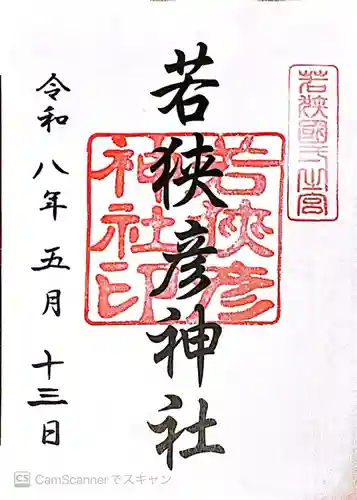 若狭國一之宮
若狭彦神社
若狭彦
神社印
令和八年五月十三日
CS CamScannerでスキャン